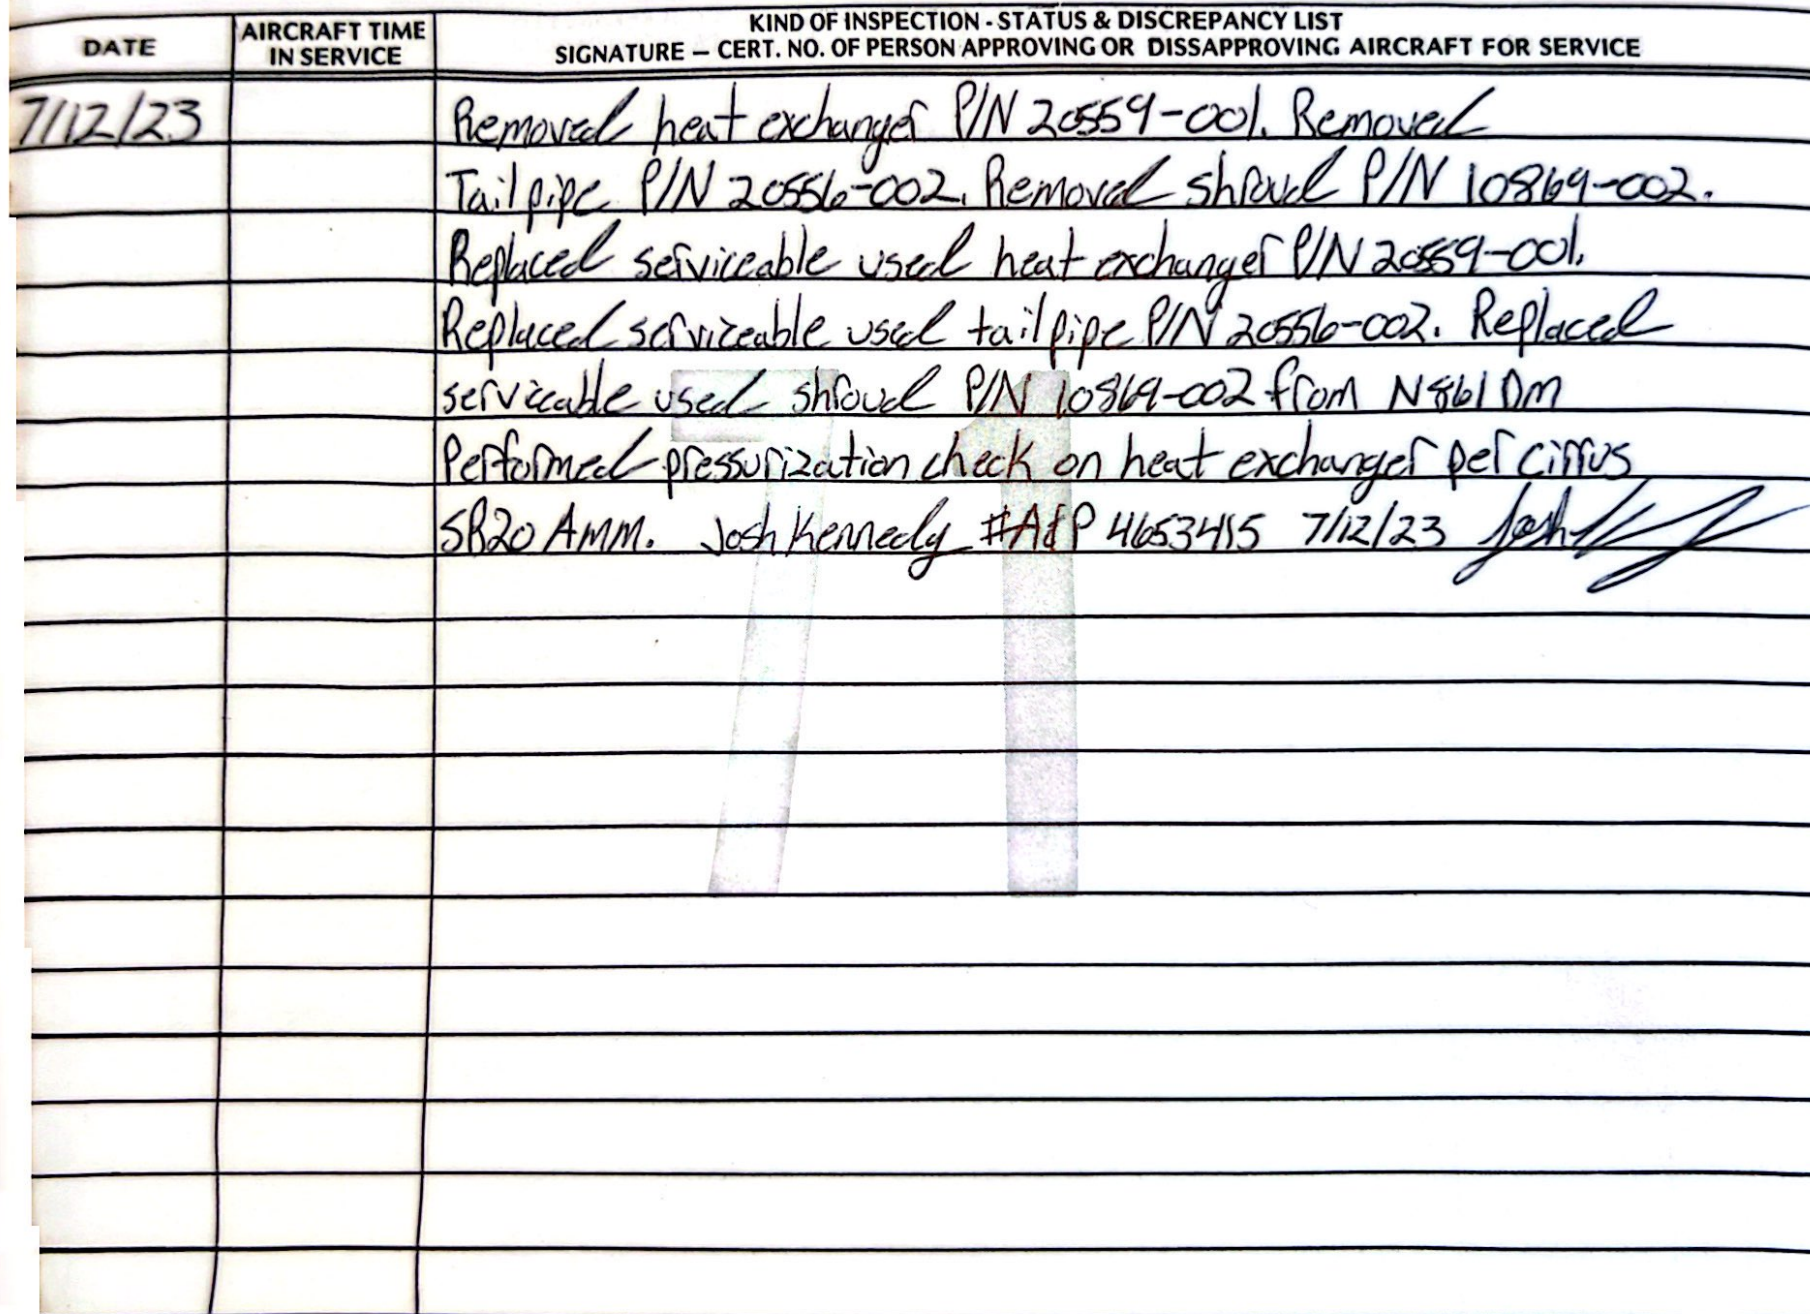 DATE
AIRCRAFT TIME
IN SERVICE
KIND OF INSPECTION - STATUS & DISCREPANCY LIST
SIGNATURE — CERT. NO. OF PERSON APPROVING OR DISSAPPROVING AIRCRAFT FOR SERVICE
7/12/23 Removed heat exchanger P/N 20559-001. Removed
Tailpipe P/N 20556-002. Removed shroud P/N 10869-002.
Replaced serviceable used heat exchanger P/N 20559-001.
Replaced serviceable used tailpipe P/N 20556-002. Replaced
serviceable used shroud P/N 10869-002 from N861DM
Performed pressurization check on heat exchanger per cirrus
SR20 AMM. Josh Kennedy #A&P 4653415 7/12/23 Josh
71